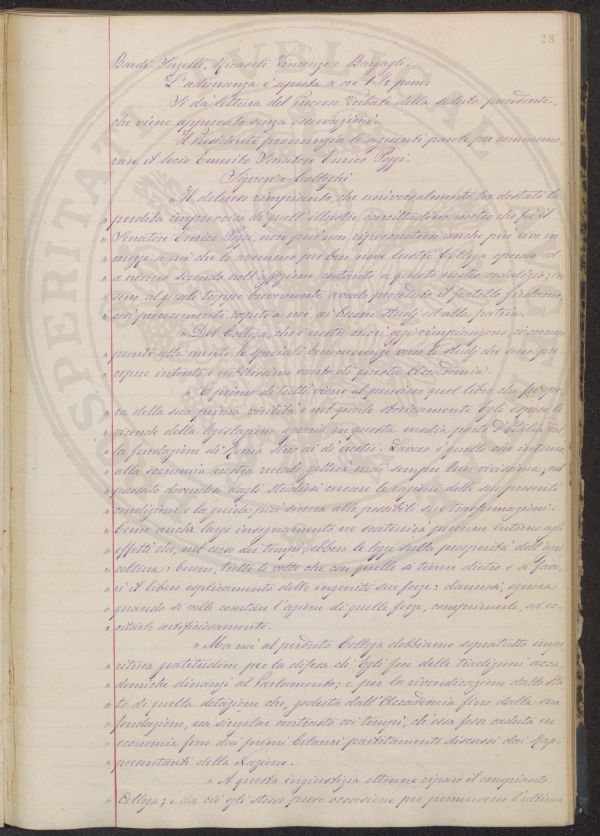 28
Bardi Serzelli, Ricasoli Vincenzo e Barsagli.
L'adunanza è aperta a ore 1½ pom:
Si dà lettura del processo verbale della seduta precedente
che viene approvato senza osservazioni.
Il Presidente pronunzia le seguenti parole per commemo-
rare il Socio Emerito Senatore Enrico Poggi.
Signori e Colleghi
" Il doloroso rimpianto, che universalmente ha destato la
" perdita improvvisa di quell'illustre concittadino nostro che fu il
" Senatore Enrico Poggi, non può non ripercuotersi anche più vivo in
" mezzo a noi che lo avemmo per ben nove lustri Collega operoso ed
" a niuno secondo nell'affezione costante a questo nostro sodalizio, in
" seno al quale troppo brevemente avealo preceduto il fratello Girolamo,
" così precocemente rapito a noi, ai buoni studj ed alla patria.
" Del Collega, che i nostri cuori oggi rimpiangono, si
" alla mente le speciali benemerenze verso li studj che sono per-
" intento e nobilissimo vanto di questa Accademia.
" E primo di tutti viene al pensiero quel libro che fu
" della sua prima virilità e nel quale storicamente Egli espose le
" vicende della legislazione agraria in questa media parte d'Italia dal-
" la fondazione di Roma sino ai dì nostri. Lavoro è quello che intorno
" alla economia nostra rurale getterà mai sempre luce vivissima, nel
" passato dovendosi dagli studiosi cercare la ragione delle sue presenti
" condizioni e la guida più sicura alle possibili sue trasformazioni.
" Come anche largo insegnamento ne scaturirà perenne intorno agli
" effetti che, nel corso dei tempi, ebbero le leggi sulla prosperità dell'agri-
" coltura: buoni, tutte le volte che con quelle si tenne dietro e si favo-
" rì il libero esplicamento delle ingenite sue forze: dannosi, ognora
" quando si volle coartare l'azione di quelle forze, comprimerle, od ec-
" citarle artificiosamente.
" Ma noi al perduto Collega dobbiamo sopratutto impe-
" ritura gratitudine per la difesa ch'Egli fece delle tradizioni acca-
" demiche dinanzi al Parlamento; e per la rivendicazione dallo Sta-
" to di quella dotazione che, goduta dall'Accademia fino dalla sua
" fondazione, era singolar contrasto coi tempi, ch'essa fosse caduta in
" economia fino dai primi bilanci partitamente discussi dai Rap-
" presentanti della Nazione.
" A questa ingiustizia ottenne riparo il compianto
" Collega; e da ciò egli stesso prese occasione per promuovere l'ultima